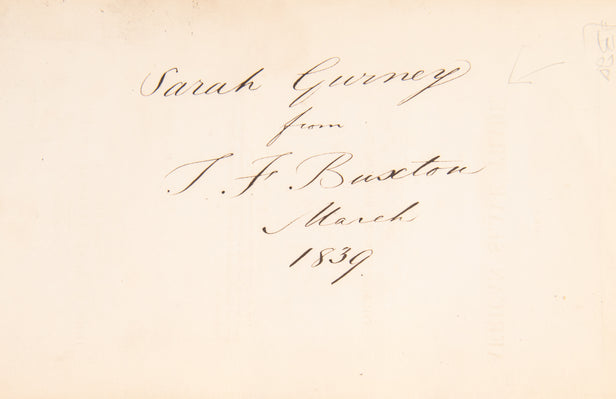 Sarah Gurney
from
T. F. Buxton
March
1839.